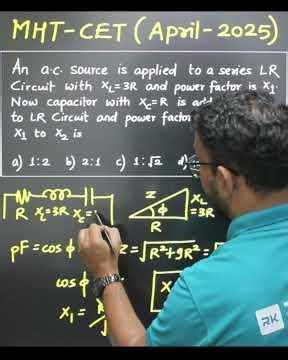 MHT-CET (April-2025)
An a.c. source is applied to a series LR
Circuit with XL=3R and power factor is X1.
Now capacitor with XC=R is
to LR Circuit and power factor
X1 to X2 is
a) 1:2 b) 2:1 c) 1:√2 d)
R XL=3R XC=
Z XL
=3R
ϕ
R
PF = cos ϕ Z = √R²+9R² =
cos ϕ
X1 =
RK